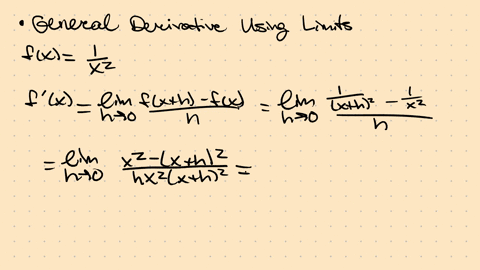 • General Derivative Using Limits
f(x) = 1/x²
f'(x) = lim h→0 (f(x+h) - f(x))/h = lim h→0 (1/(x+h)² - 1/x²)/h
= lim h→0 (x² - (x+h)²)/(hx²(x+h)²) =